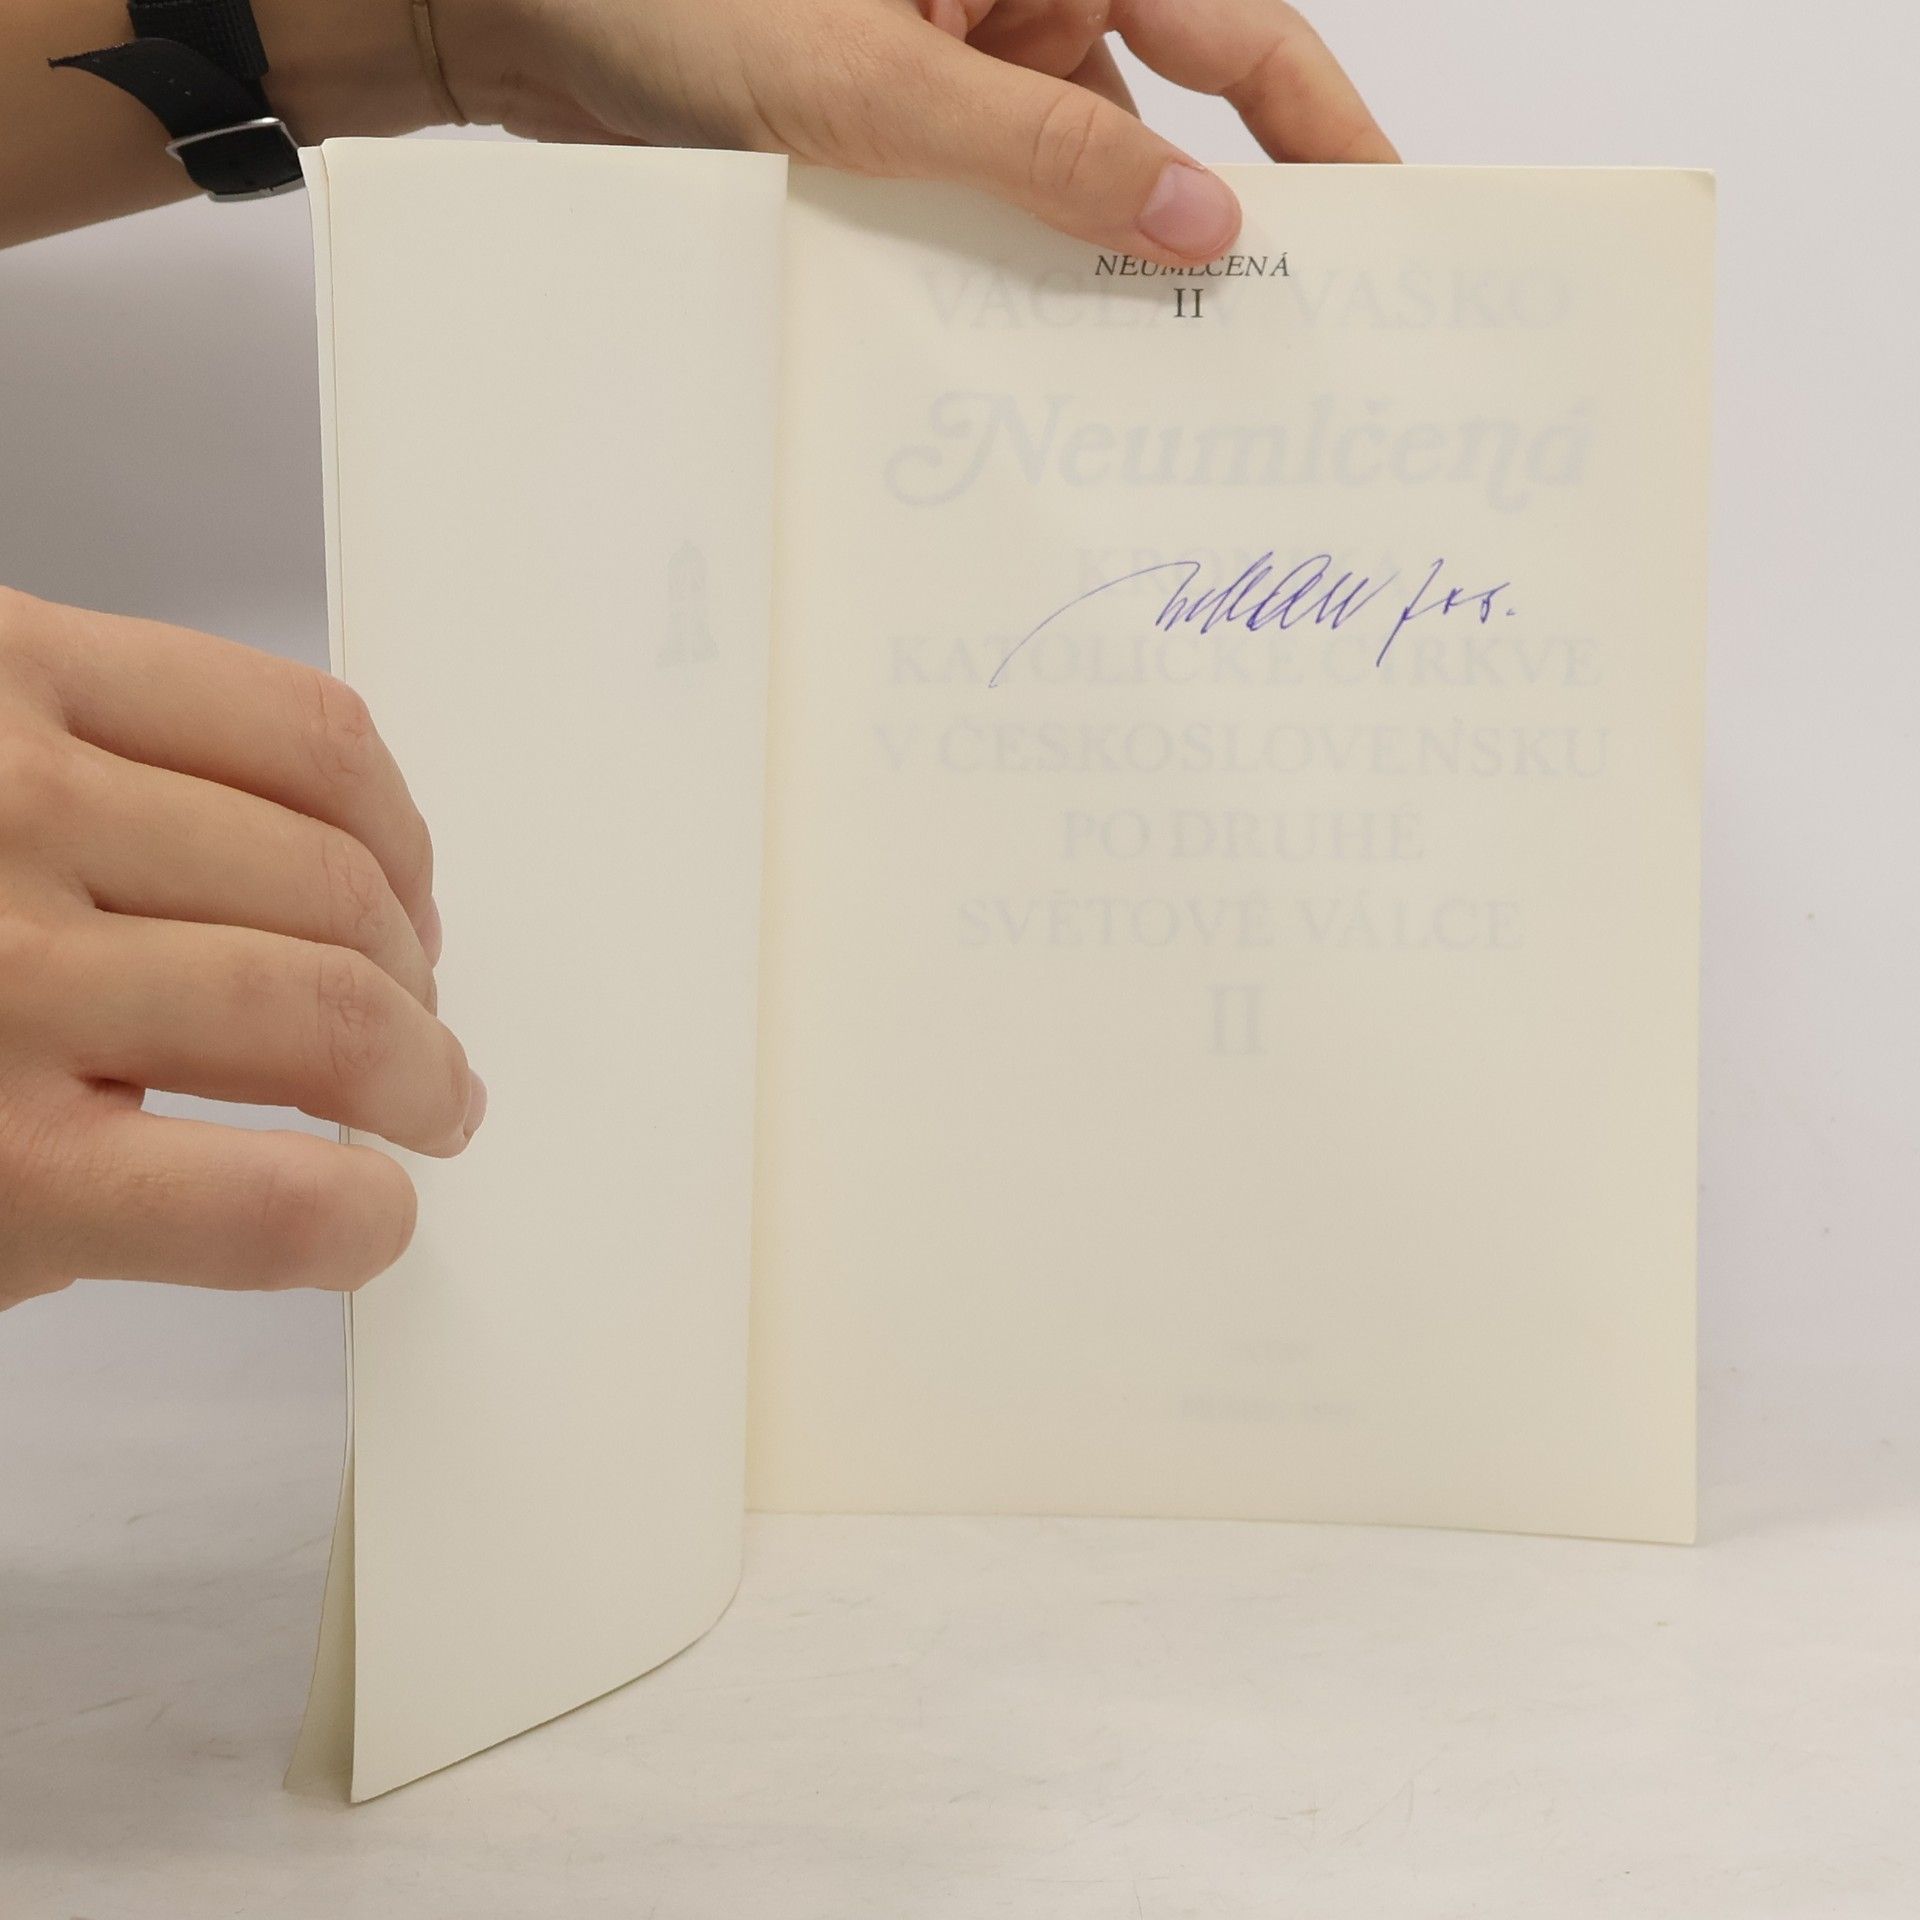 NEUMLČENÁ
II
VÁCLAV VAŠKO
Neumlčená
KRONIKA
KATOLICKÉ CÍRKVE
V ČESKOSLOVENSKU
PO DRUHÉ
SVĚTOVÉ VÁLCE
II